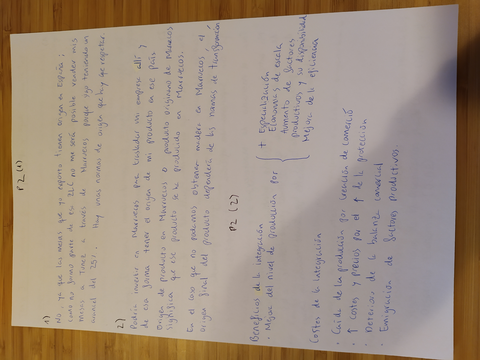 P2 (1)
1)
No, ya que las mesas que yo exporto tienen origen en España;
como no forma parte de su ZLC no me será posible vender mis
mesas a Túnez a través de Marruecos porque sigo teniendo un
arancel del 25%. Hay unas normas de origen que hay que respetar.
2)
Podría invertir en Marruecos que trasladar mi empresa allí y
de esa forma tener el origen de mi producto en ese país.
Origen de producto en Marruecos o producto originario de Marruecos
significa que ese producto se ha producido en Marruecos.
En el caso que no podamos obtener madera en Marruecos el
origen final del producto dependerá de las normas de transformación
P2 (2)
Beneficios de la integración
• Mejora del nivel de producción por { + Especialización
Economías de escala
Aumento de factores
productivos y su disponibilidad
Mejora de la eficiencia
Costes de la integración
• Caída de la producción por creación de comercio
• ↑ costes y precios por el ↑ de la protección
• Deterioro de la balanza comercial
• Emigración de factores productivos